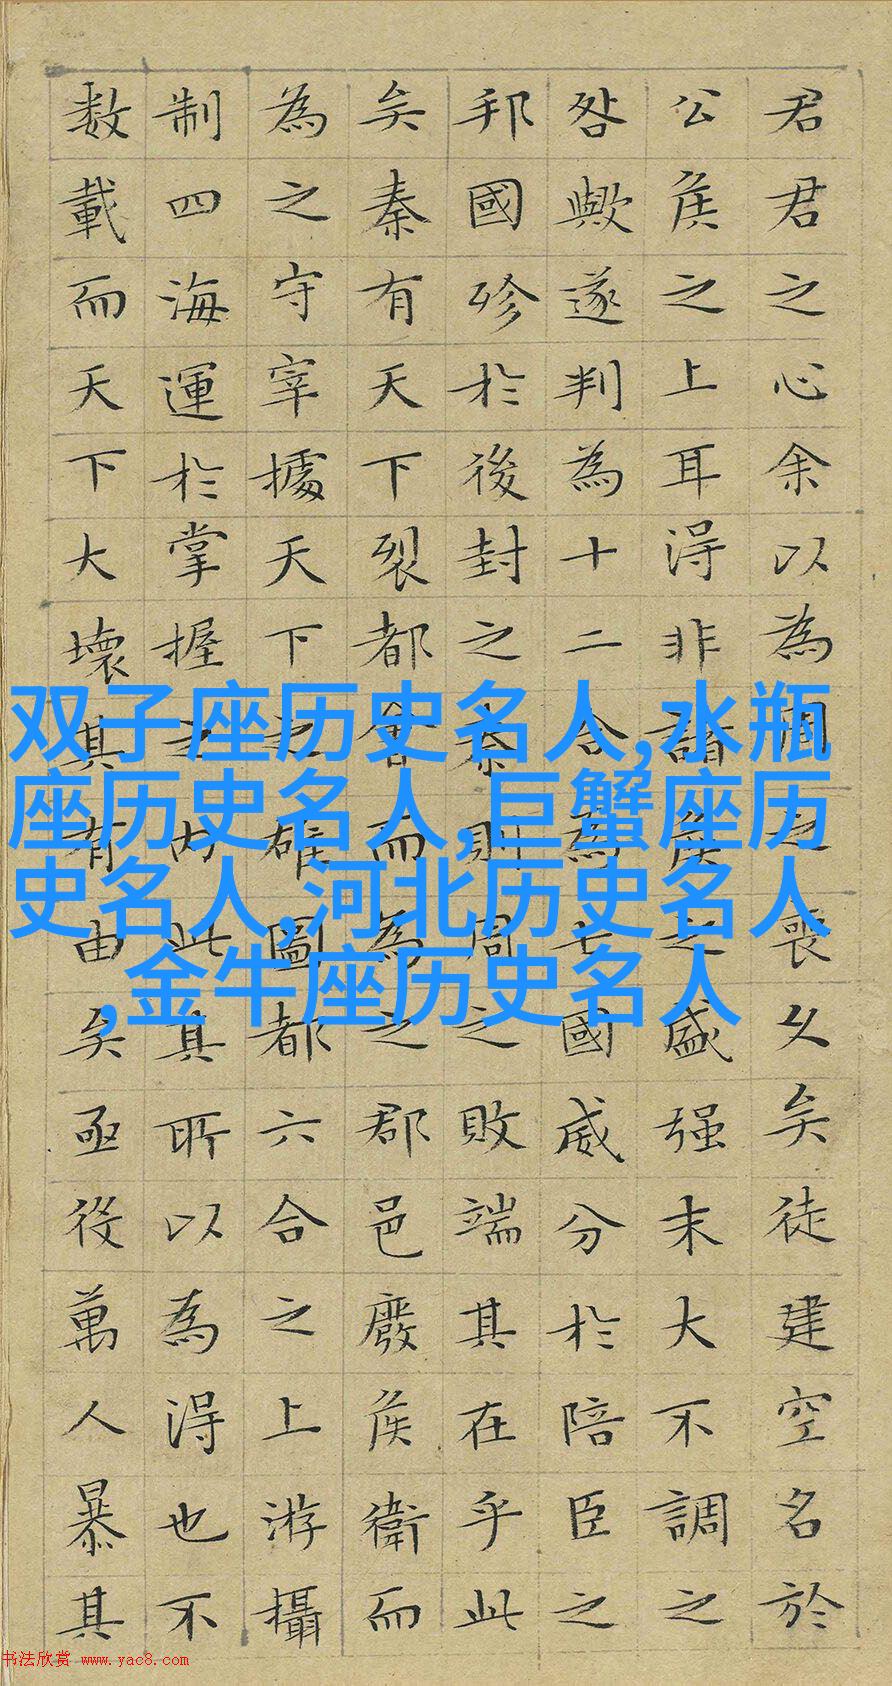 君君之心余以為周之喪久矣徒建空名於
公侯之上耳得非諸侯之盛强末大不調之
咎歟遂判為十二合為七國威分於陪臣之
邦國殄於後封之秦則周之敗端其在乎此
矣秦有天下裂都會而為之郡邑廢侯衛而
為之守宰據天下之雄圖都六合之上游攝
制四海運於掌握之内此其所以為得也不
数載而天下大壞其有由矣亟役萬人暴其
双子座历史名人,水瓶
座历史名人,巨蟹座历
史名人,河北历史名人
,金牛座历史名人
书法欣赏 www.yac8.com